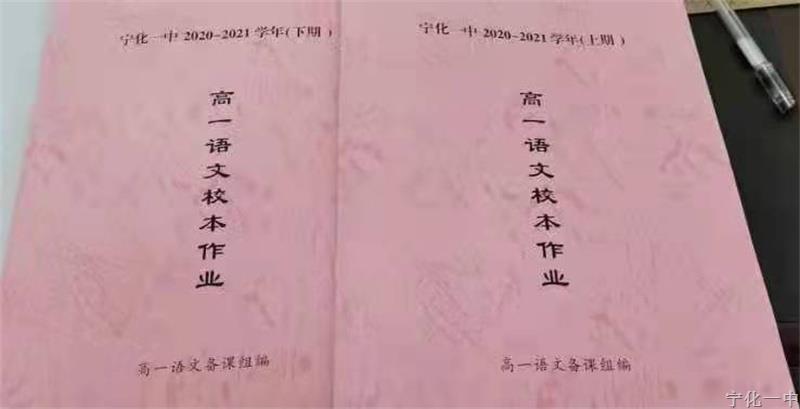 宁化一中 2020-2021 学年(下期 )
高一语文校本作业
高一语文备课组编
宁化一中 2020-2021 学年(上期 )
高一语文校本作业
高一语文备课组编
宁化一中